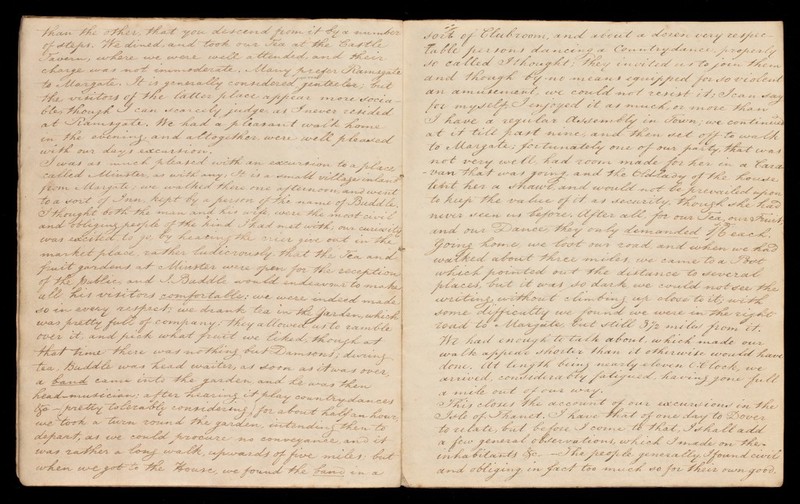 than the other, that you descend from it by a number
of steps. We dined, and took our Tea at the Castle
Tavern, where we were well attended, and their
charge was not immoderate. Many prefer Ramsgate
to Margate. It is generally considered genteeler; but
the visitors of the latter place appear more socia-
ble, though I can scarcely judge, as I never resided
at Ramsgate. We had a pleasant walk home
in the evening, and altogether were well pleased
with our day's excursion.
I was as much pleased with an excursion to a place
called Minster, as with any; It is a small village inland
from Margate; we walked there one afternoon, and went
to a sort of Inn, kept by a person of the name of Buddle.
I thought both the man and his wife were the most civil
and obliging people of the kind I had met with; our curiosity
was excited to go by hearing the crier give out in the
market place, rather ludicrously, that the Tea and
fruit gardens at Minster were open for the reception
of the Public, and Mr. Buddle would endeavour to make
all his visitors comfortable; we were indeed made
so in every respect; we drank tea in the garden, which
was pretty full of company; they allowed us to ramble
over it, and pick what fruit we liked, though at
that time there was nothing but Damsons; during
tea, Buddle was head waiter, as soon as it was over,
a band came into the garden and he was then
head-musician; after hearing it play country dances
&c - pretty tolerably considering, for about half an hour,
we took a turn round the garden, intending then to
depart, as we could procure no conveyance, and it
was rather a long walk, upwards of five miles; but
when we got to the House, we found the band in a
sort of Clubroom, and about a dozen very respec-
table persons dancing a Country dance, properly
so called I thought; they invited us to join them
and though by no means equipped for so violent
an amusement, we could not resist it; I can say
for myself I enjoyed it as much, or more than
I have a regular Assembly in Town; we continued
at it till past nine, and then set off to walk
to Margate; fortunately one of our party, that was
not very well, had room made for her in a Cara-
van that was going, and the Old Lady of the house
lent her a shawl and would not be prevailed upon
to keep the value of it as security, though she had
never seen us before. After all for our Tea, our Fruit,
and our Dance, they only demanded 1/6 each.
Going home, we lost our road and when we had
walked about three miles, we came to a Post
which pointed out the distance to several
places, but it was so dark we could not see the
writing without climbing up close to it; with
some difficulty we found we were in the right
road to Margate, but still 3½ miles from it.
We had enough to talk about, which made our
walk appear shorter than it otherwise would have
done. At length being nearly eleven O'Clock, we
arrived, considerably fatigued, having gone full
a mile out of our way.
This closes the account of our excursions in the
Isle of Thanet. I have that of one day to Dover
to relate, but before I come to that, I shall add
a few general observations, which I made on the
inhabitants &c. — The people generally I found civil
and obliging, in fact too much so for their own good.